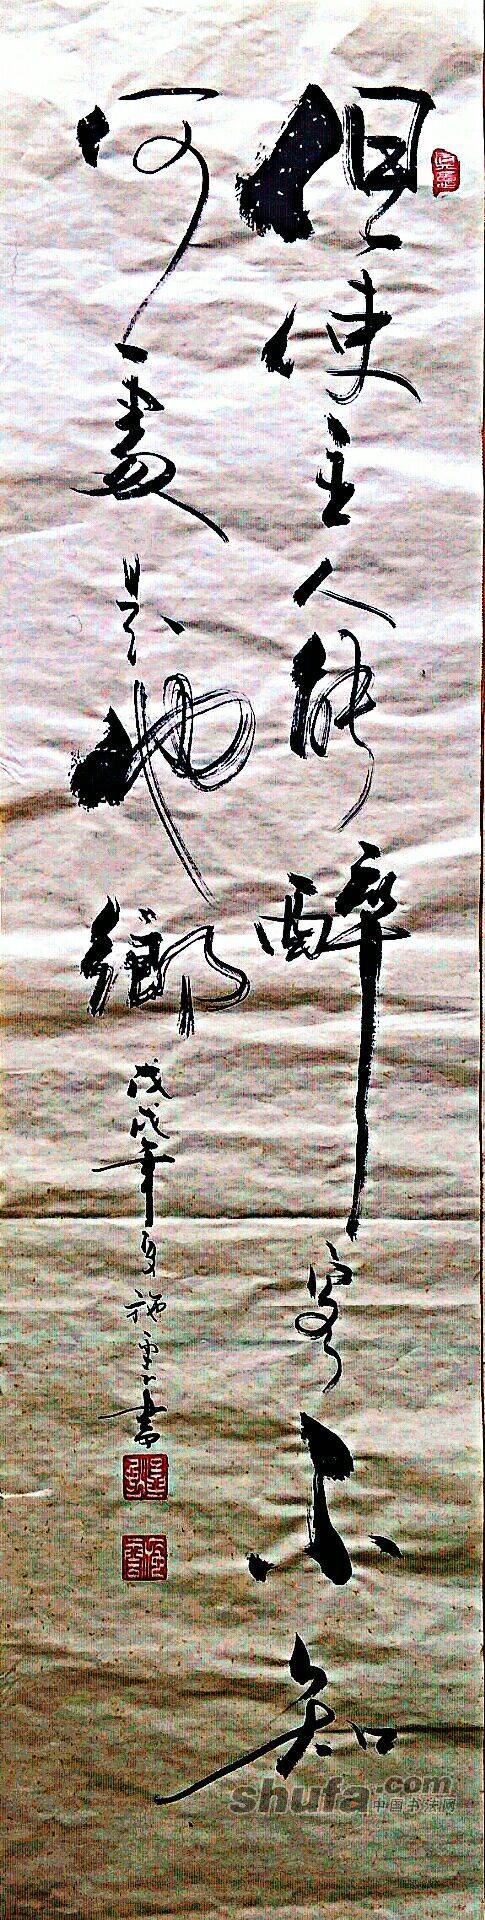 但使主人能醉客不知
何處是他鄉
戊戌年夏施雲書
shufa.com 中国书法网